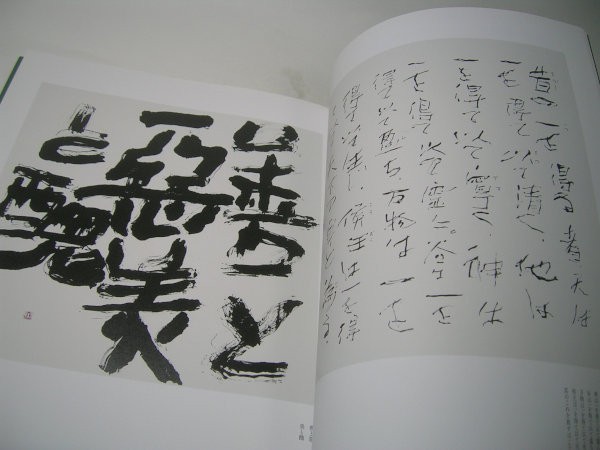 昔の一を得る者天は
一を得て以て清く、地は
一を得て以て寧く、神は
一を得て以て霊に。谷は一を
得て以て盈ち、万物は一を
得て以て生じ、侯王は一を得
善と
惡美
と醜